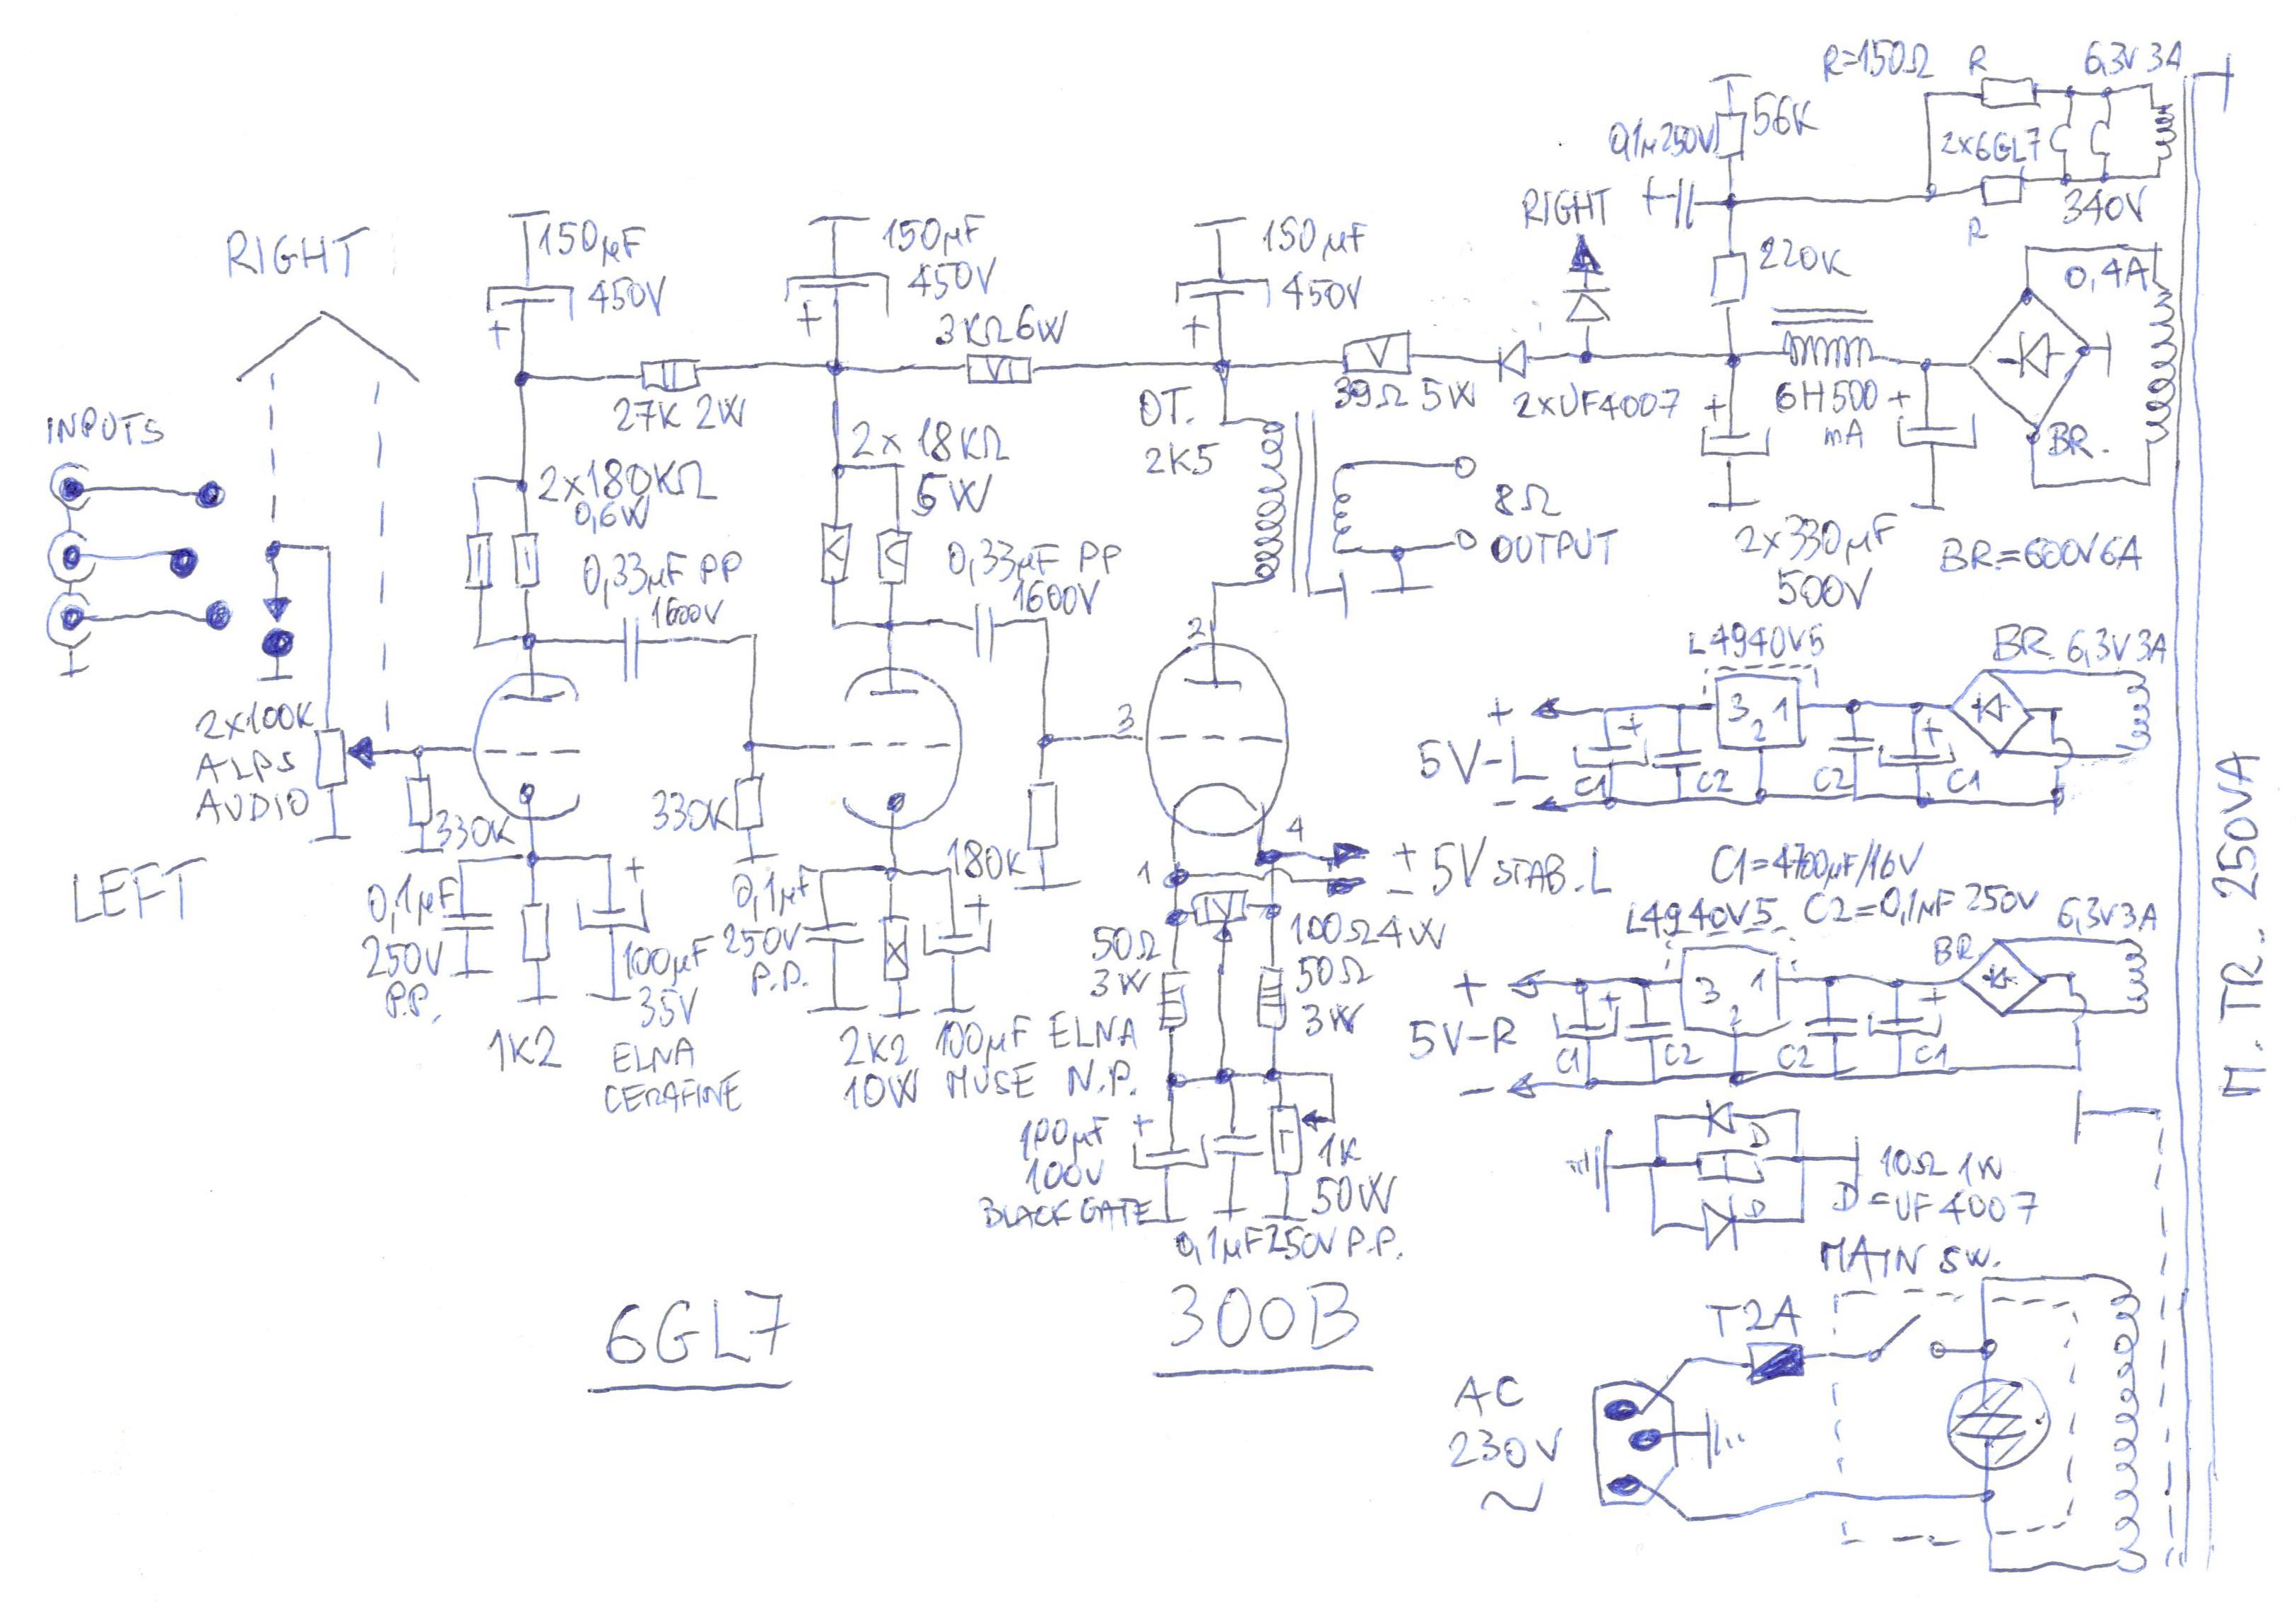 R=150Ω
R
6,3V 3A
56K
0,1µ 250V
2x6GL7
340V
R
RIGHT
RIGHT
150µF
450V
+
150µF
450V
+
150µF
450V
+
220K
0,4A
3KΩ 6W
27K 2W
39Ω 5W
2xUF4007
+
6H500
mA
+
BR.
OT.
2K5
INPUTS
2x180KΩ
0,6W
2x 18KΩ
5W
8Ω
OUTPUT
2x330µF
500V
BR=600V6A
0,33µF PP
1600V
0,33µF PP
1600V
2
3
L4940V5
BR. 6,3V3A
+
3 1
2
5V-L
+
C1
C2
C2
+
C1
-
2x100K
ALPS
AUDIO
330K
330K
180K
LEFT
1
4
+
- 5V STAB.L
C1=4700µF/16V
C2=0,1µF 250V
0,1µF
250V
P.P.
+
100µF
35V
ELNA
CERAFINE
1K2
0,1µF
250V
P.P.
+
2K2
10W
100µF ELNA
MUSE N.P.
50Ω
3W
100Ω4W
50Ω
3W
L4940V5
BR.
6,3V3A
+
3 1
2
5V-R
+
C1
C2
C2
+
C1
-
100µF
100V
+
BLACK GATE
1K
50W
0,1µF250V P.P.
D
10Ω 1W
D
D=UF4007
M. TR. 250VA
MAIN SW.
T2A
AC
230V
~
6GL7
300B